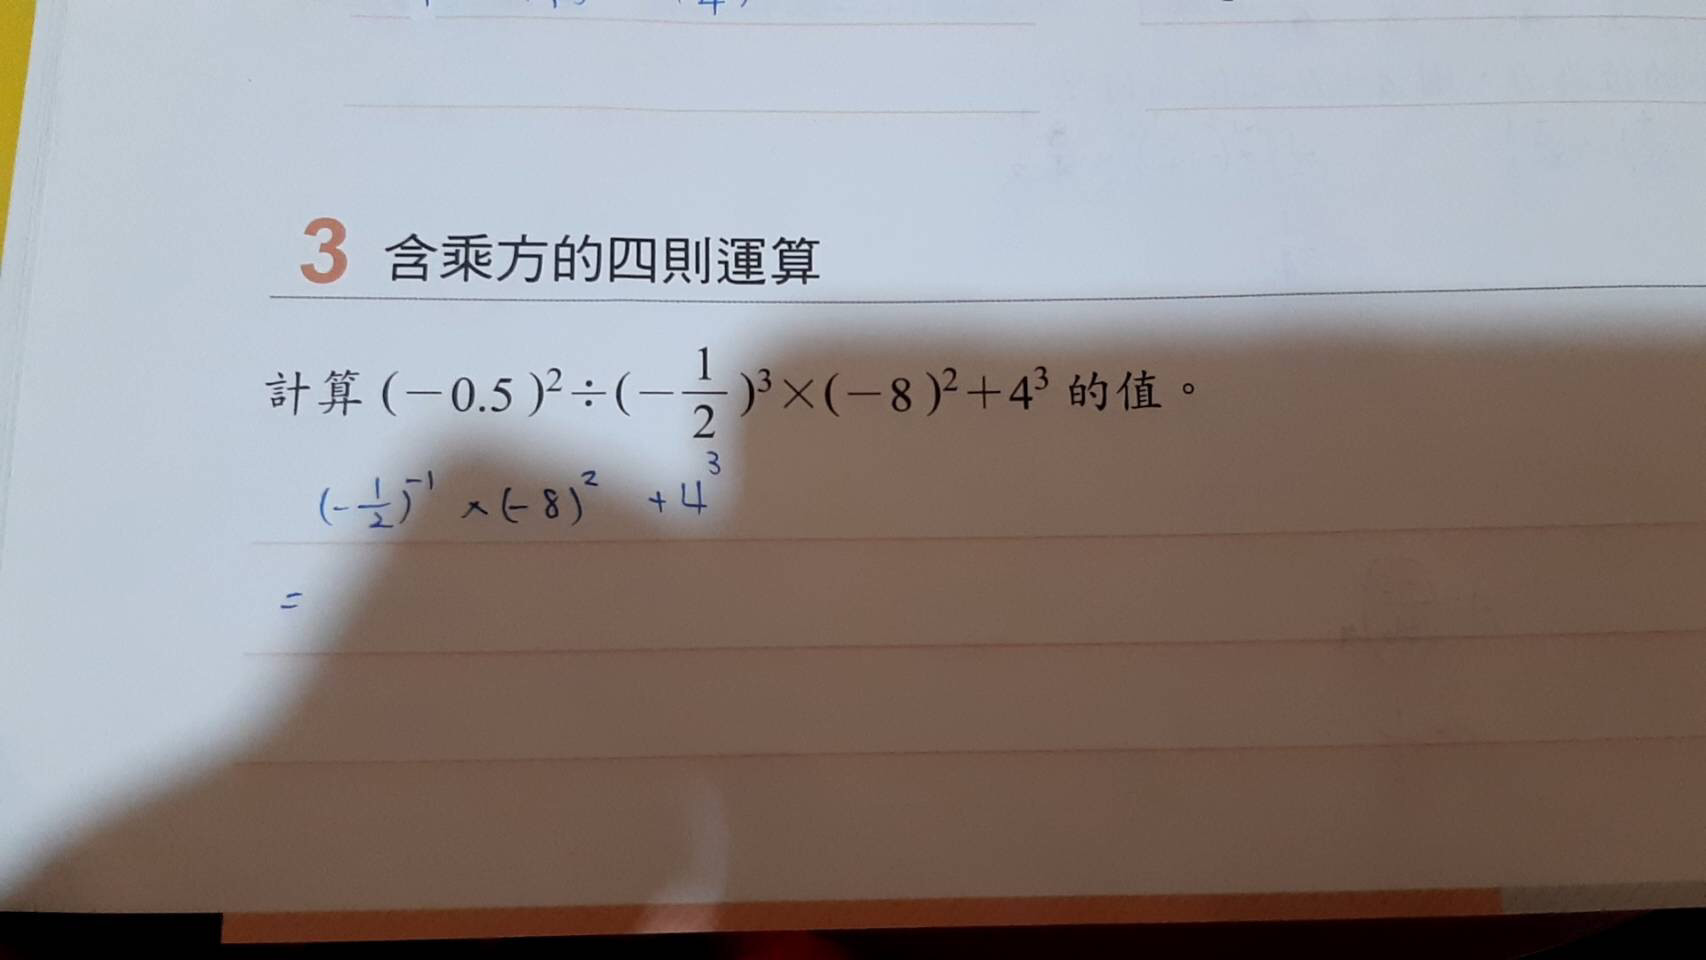 3 含乘方的四則運算
計算 (－0.5)²÷(－1/2)³×(－8)²＋4³ 的值。
(-1/2)⁻¹ × (-8)² + 4³
=